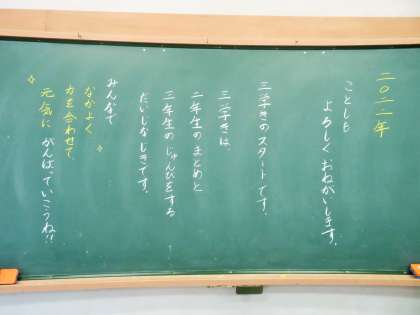 二〇二二年
ことしも
よろしくおねがいします。
三学きのスタートです。
三学きは、
二年生のまとめと
三年生のじゅんびをする
だいじなじきです。
みんなで
なかよく
力を合わせて
元気にがんばっていこうね!!